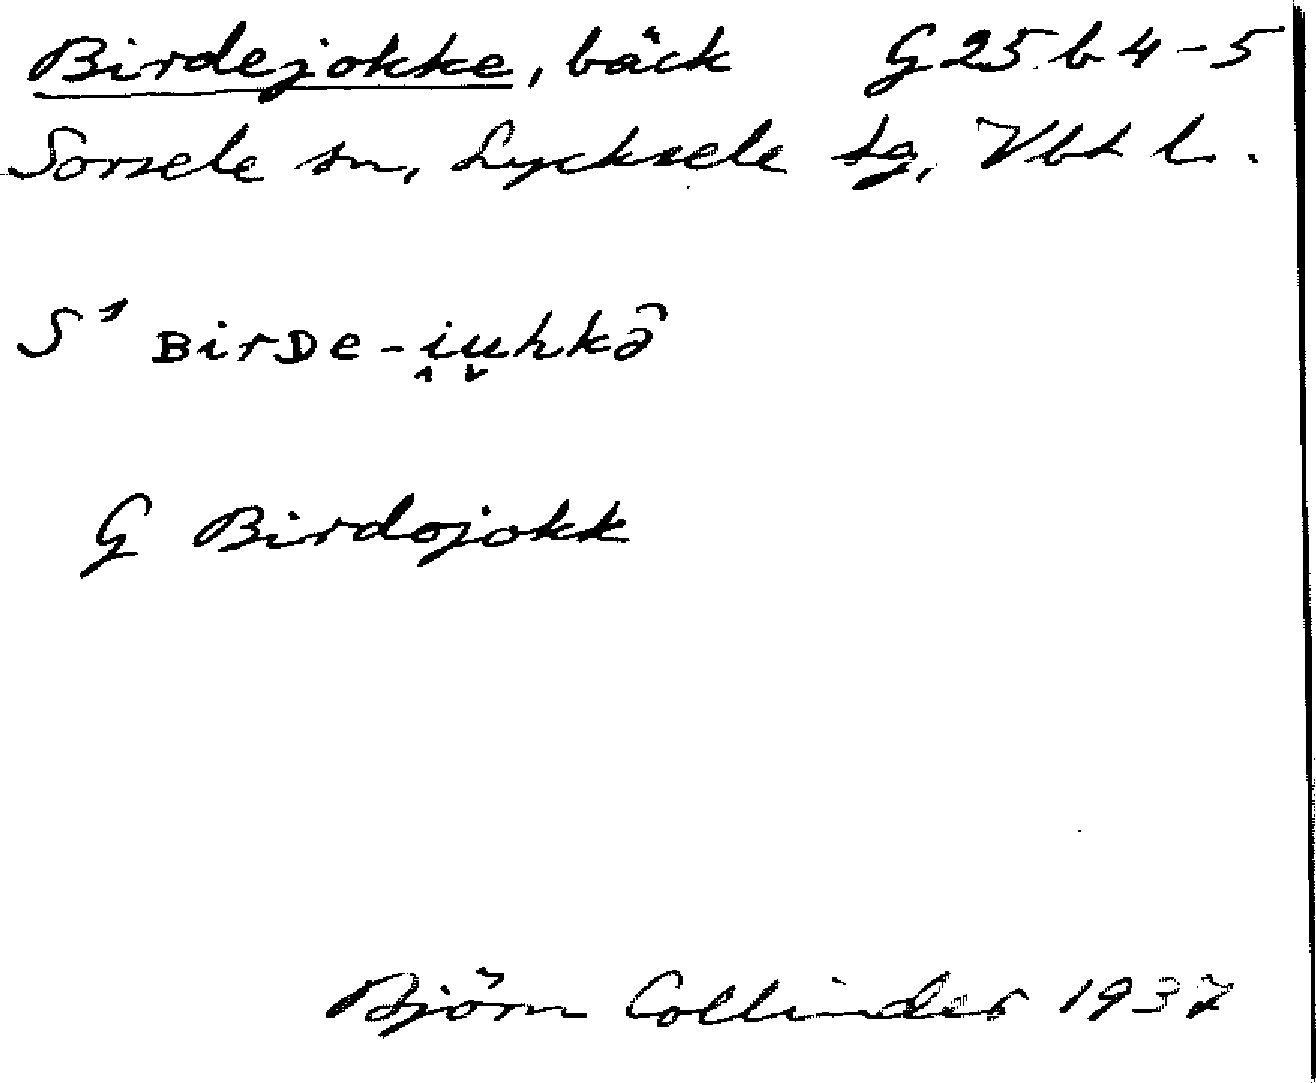 Birdejokke, bäck G 25 b 4-5
Sorsele sn, Lycksele tg, Vbt l.
S¹ ʙirᴅe-i̭u̬hkə̂
G Birdojokk
Björn Collinder 1937